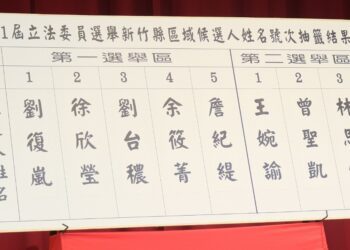 1屆立法委員選舉新竹縣區域候選人姓名號次抽籤結果
第一選舉區 第二選舉區
1 2 3 4 5 1 2 3
姓名
劉復嵐
徐欣瑩
劉台穠
余筱菁
詹紀緹
王婉諭
曾聖凱
林思